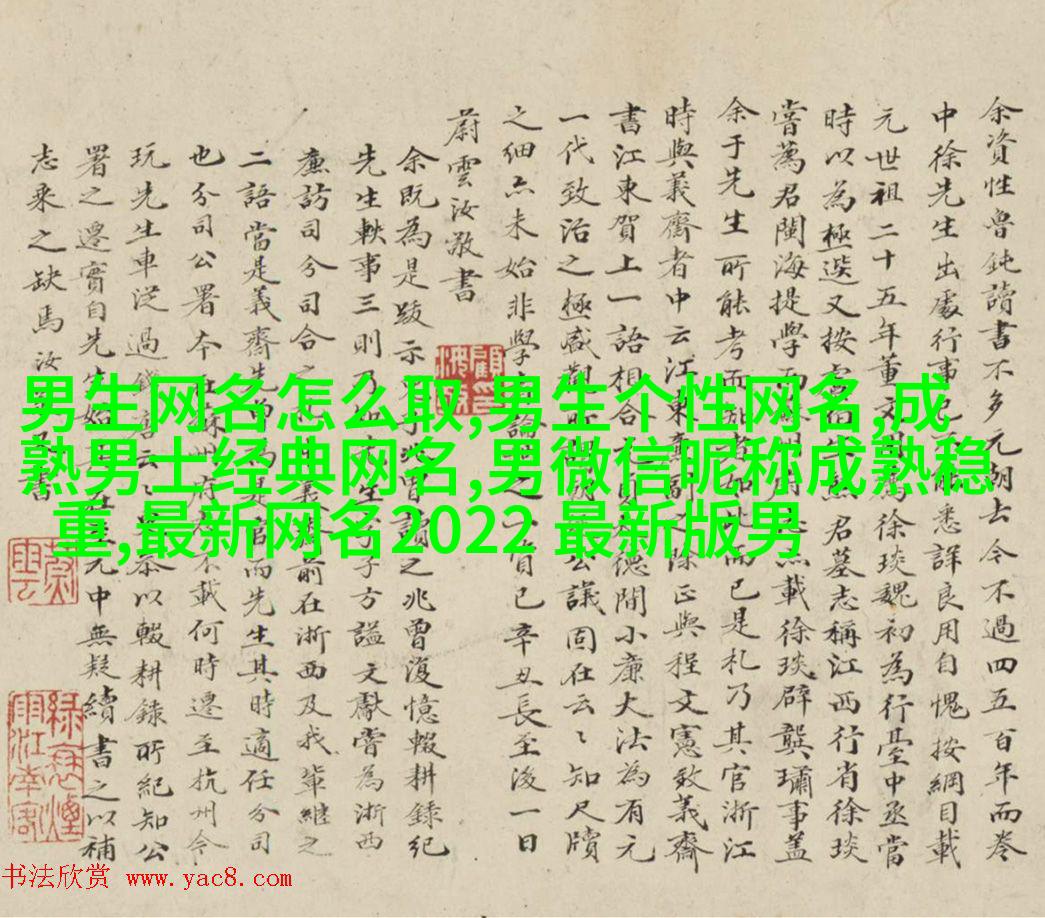 余資性魯鈍讀書不多元朝去今不過四五百年而卷
中徐先生出處行事
悉詳良用自愧按綱目載
元世祖二十五年董文
徐琰魏初為行臺中丞當
時以為極選又按
君墓志稱江西行省徐琰
嘗薦君閩海提學
載徐琰辟龔璛事蓋
余于先生所能考而
而已是札乃其官浙江
時與義齋者中云江東
除正與程文憲效義齋
書江東賀上一語相合
德間小廉大法為有元
一代致治之極盛
公議固在云〻知尺牘
之細亦未始非學
資已辛丑長至後一日
蔚雲汝敬書
余既為是跋示
兆曾復憶輟耕錄紀
先生軼事三則乃
子方謚文獻嘗為浙西
廉訪司分司合
前在浙西及我輩繼之
二語當是義齋先
而先生其時適任分司
也分司公署今在
不載何時遷至杭州今
玩先生車從過錢唐云〻
泰以輟耕錄所紀知公
署之遷實自先生始
元中無疑續書之以補
志乘之缺馬汝
書
男生网名怎么取,男生个性网名,成
熟男士经典网名,男微信昵称成熟稳
重,最新网名2022 最新版男
书法欣赏 www.yac8.com